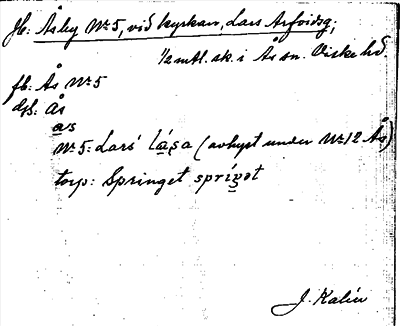 jb: Åsby Nr 5, vid kyrkan, Lars Arfvidsg,
1/2 mtl. sk. i Ås sn. Viske hd.
fb: Ås Nr 5
dpl: ås
a̲s
Nr 5: Lars' lása (avhyst under Nr 12 Ås)
torp: Springet sprịŋət
J. Kalén